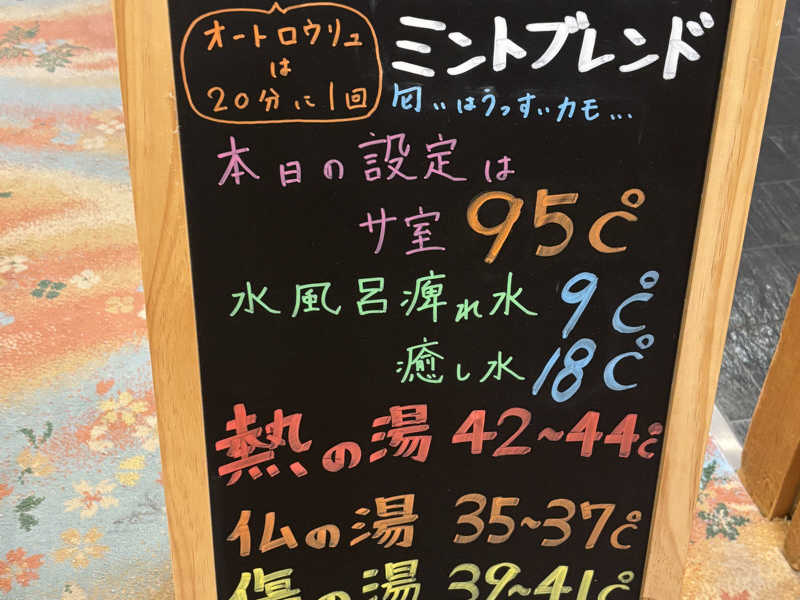 オートロウリュ
は
20分に1回
ミントブレンド
匂いはうっすぃカモ...
本日の設定は
サ室 95℃
水風呂 痺れ水 9℃
癒し水 18℃
熱の湯 42~44℃
仏の湯 35~37℃
傷の湯 39~41℃